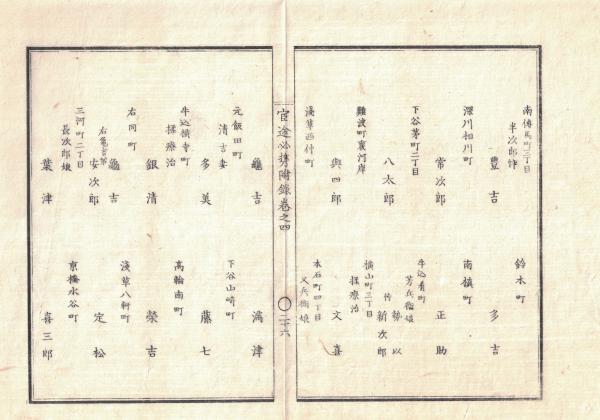 南傳馬町三丁目
半次郎忰
豊吉
鈴木町
多吉
深川相川町
常次郎
南鍋町
正助
下谷茅町二丁目
八太郎
牛込肴町
芳兵衛娘
勢以
忰
新次郎
難波町裏河岸
與四郎
横山町三丁目
揉療治
文喜
淺草西仲町
本石町四丁目
又兵衛娘
官途必携附錄卷之四
二十六
元飯田町
清吉妻
龜吉
滿津
牛込横寺町
揉療治
多美
下谷山崎町
藤七
右同町
銀清
高輪南町
榮吉
龜吉
安次郎
淺草八軒町
定松
三河町二丁目
長次郎娘
葉津
京橋水谷町
喜三郎